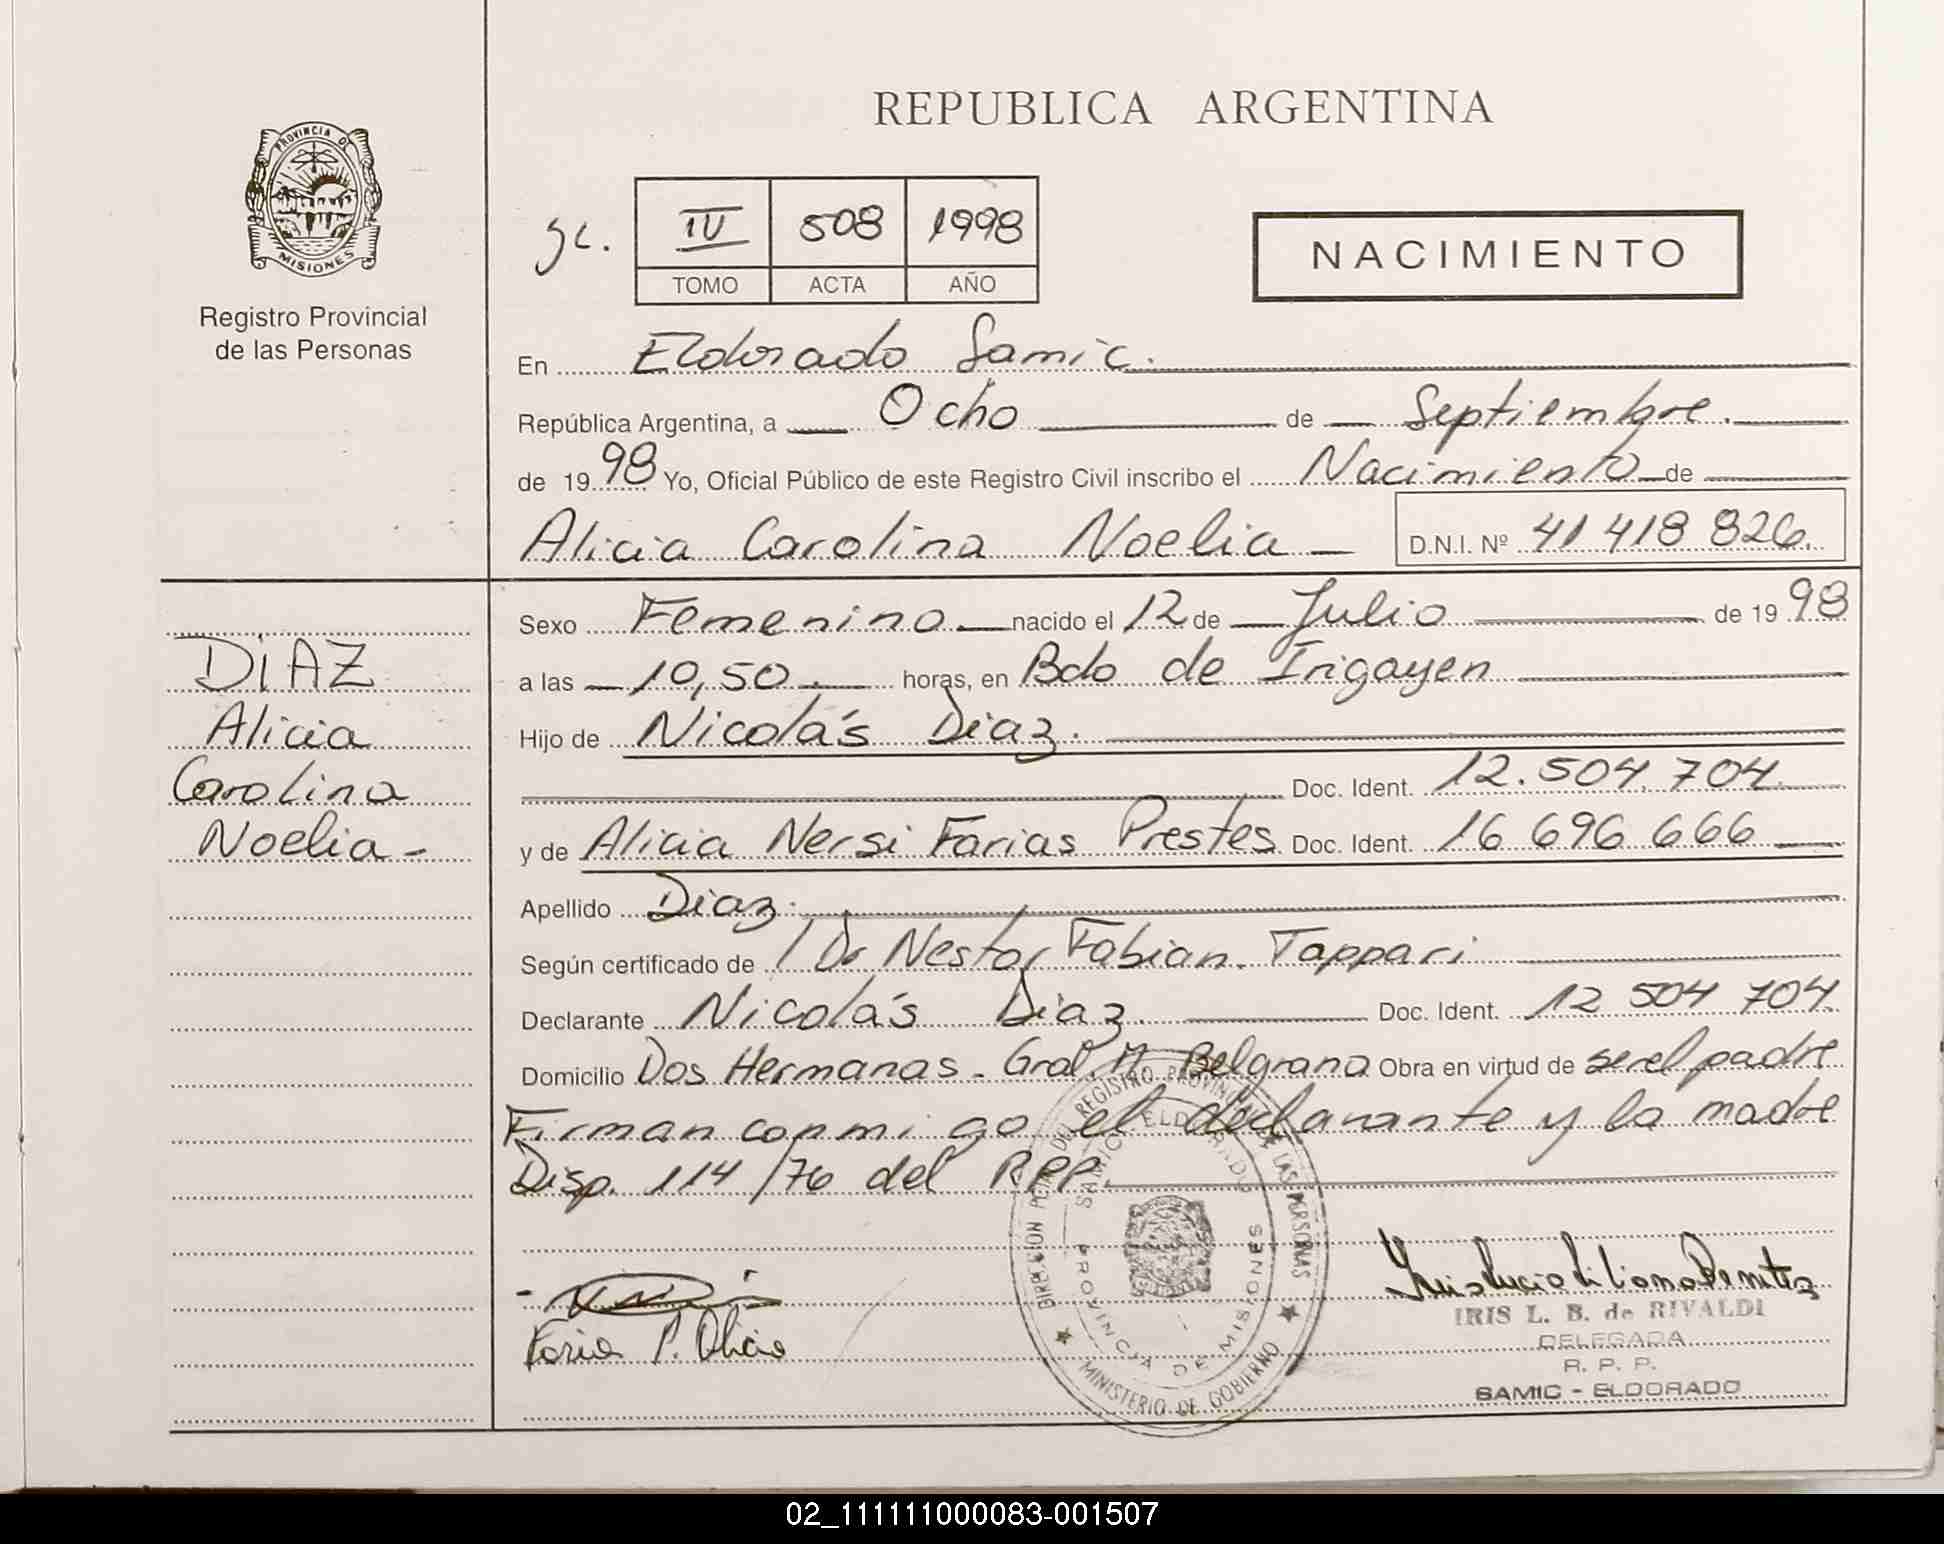 REPUBLICA ARGENTINA
PROVINCIA DE
MISIONES
Registro Provincial
de las Personas
gc.
IV 508 1998
TOMO ACTA AÑO
NACIMIENTO
En Eldorado Samic.
República Argentina, a Ocho de Septiembre.
de 1998 Yo, Oficial Público de este Registro Civil inscribo el Nacimiento de
Alicia Carolina Noelia D.N.I. Nº 41 418 826.
DIAZ
Alicia
Carolina
Noelia -
Sexo Femenino nacido el 12 de Julio de 1998
a las 10,50. horas, en Bdo de Irigoyen
Hijo de Nicolás Diaz.
Doc. Ident. 12.504.704
y de Alicia Nersi Farias Prestes Doc. Ident. 16 696 666
Apellido Diaz.
Según certificado de Dr Nestor Fabian Tappari
Declarante Nicolás Diaz. Doc. Ident. 12 504 704.
Domicilio Dos Hermanas - Gral. M. Belgrano Obra en virtud de ser el padre
Firman conmigo el declarante y la madre
Disp. 114/76 del RPP.
DIRECCION PCIAL. DEL REGISTRO PROVINCIAL DE LAS PERSONAS
SAMIC ELDORADO
PROVINCIA DE MISIONES
MINISTERIO DE GOBIERNO
Faria P. Alicia
IRIS L. B. de RIVALDI
DELEGADA
R. P. P.
SAMIC - ELDORADO
02_111111000083-001507